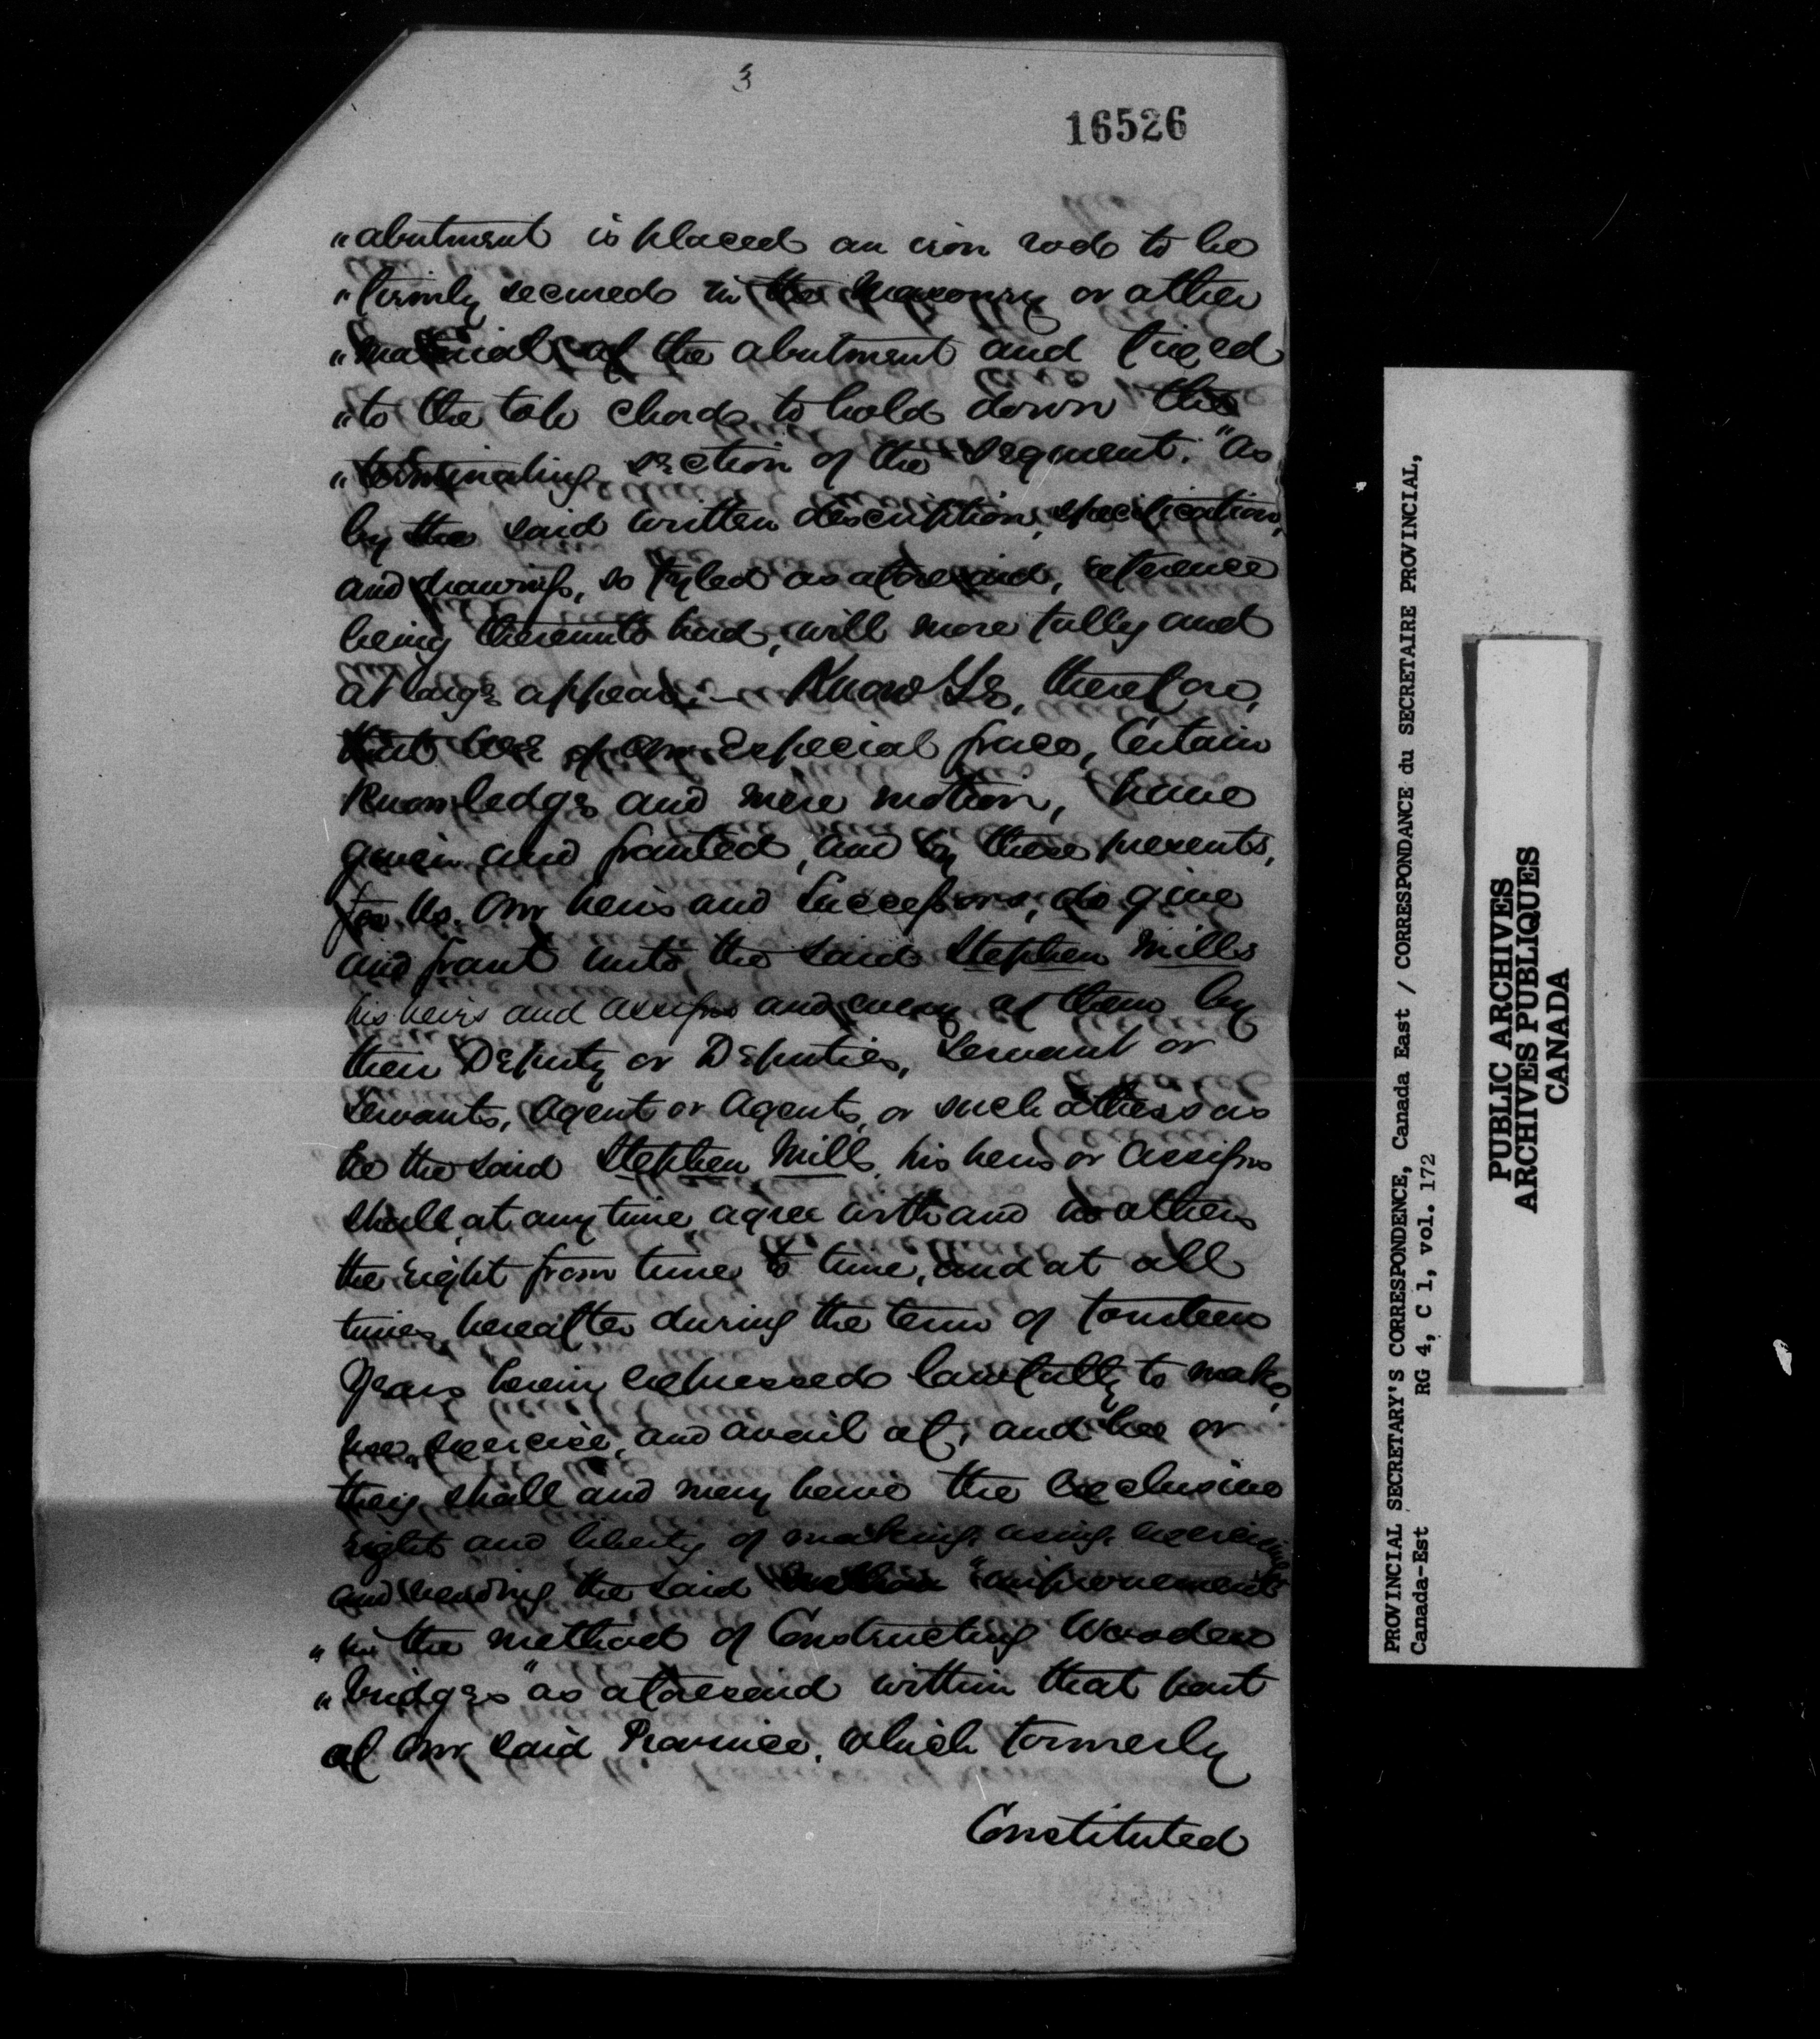 3
16526
"abutment is placed an iron rod to be
"firmly secured in the masonry or other
"material of the abutment and fixed
"to the top chord to hold down the
"terminating section of the segment." As
by the said written description, specification,
and drawings, so fyled as aforesaid, reference
being thereunto had, will more fully and
at large appear:— Know Ye, therefore,
that We of our Especial grace, Certain
Knowledge and mere motion, have
given and granted, and by these presents,
for Us, Our heirs and Successors, do give
and grant unto the said Stephen Mills
his heirs and assigns and every of them by
their Deputy or Deputies, Servant or
Servants, Agent or Agents, or such others as
he the said Stephen Mills, his heirs or assigns
shall at any time agree with and no others
the right from time to time, and at all
times hereafter during the term of fourteen
years herein expressed lawfully to make,
use, exercise, and avail of, and he or
they shall and may have the exclusive
right and liberty of making, using, exercising
and vending the said "improvement
"in the method of Constructing Wooden
"bridges" as aforesaid within that part
of Our said Province, which formerly
Constituted
PROVINCIAL SECRETARY'S CORRESPONDENCE, Canada East / CORRESPONDANCE du SECRETAIRE PROVINCIAL,
Canada-Est RG 4, C 1, vol. 172
PUBLIC ARCHIVES
ARCHIVES PUBLIQUES
CANADA